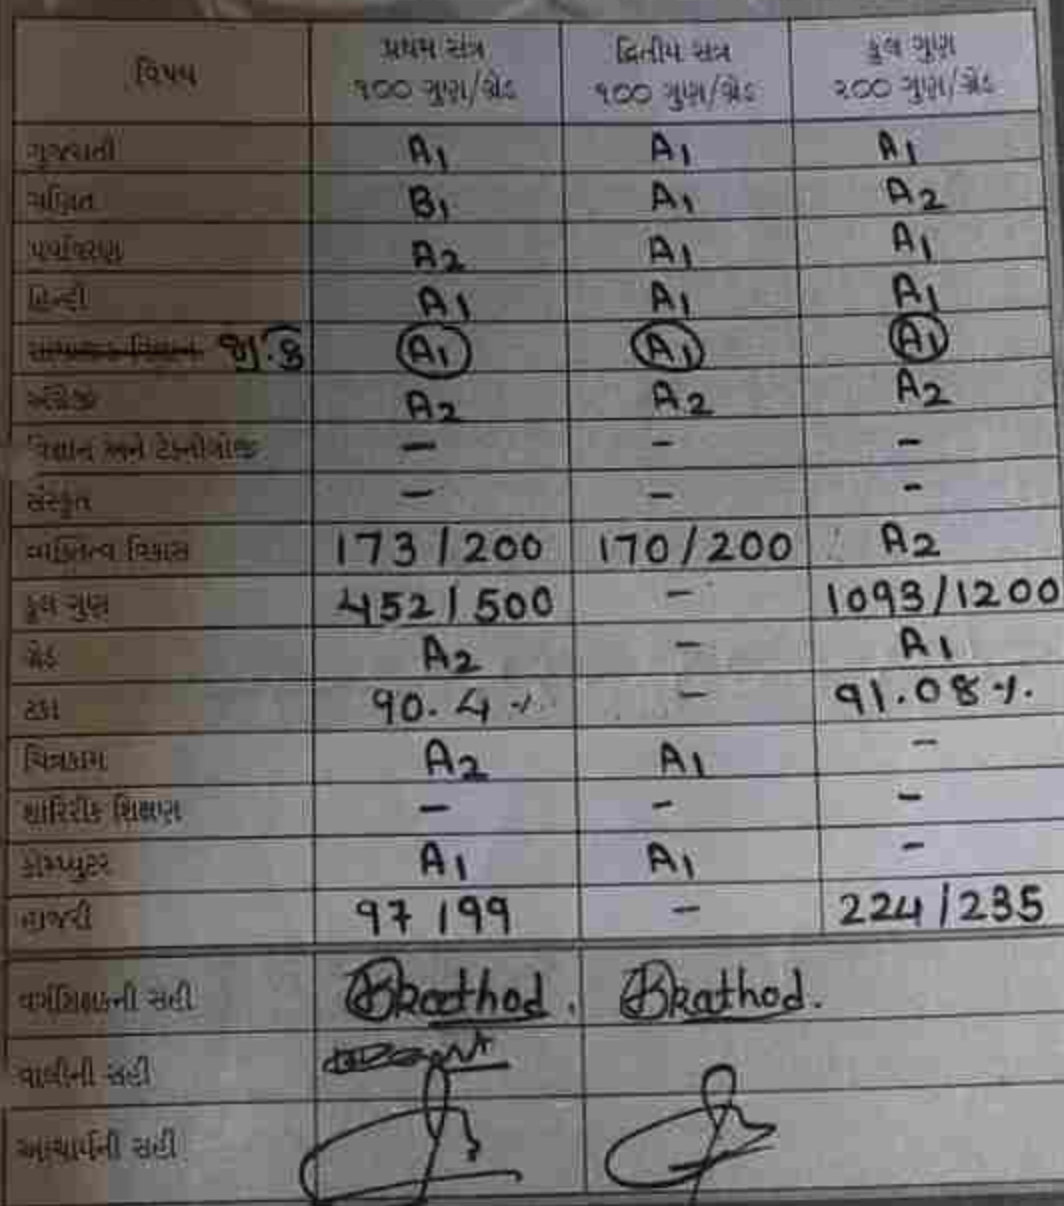 વિષય પ્રથમ સત્ર ૧૦૦ ગુણ/ગ્રેડ દ્વિતીય સત્ર ૧૦૦ ગુણ/ગ્રેડ કુલ ગુણ ૨૦૦ ગુણ/ગ્રેડ
ગુજરાતી A1 A1 A1
ગણિત B1 A1 A2
પર્યાવરણ A2 A1 A1
હિન્દી A1 A1 A1
A1 A1 A1
અંગ્રેજી A2 A2 A2
વિજ્ઞાન અને ટેક્નોલોજી - - -
સંસ્કૃત - - -
વ્યક્તિત્વ વિકાસ 173/200 170/200 A2
કુલ ગુણ 452/500 - 1093/1200
ગ્રેડ A2 - A1
ટકા 90.4 % - 91.08 %.
ચિત્રકામ A2 A1 -
શારિરીક શિક્ષણ - - -
કોમ્પ્યુટર A1 A1 -
હાજરી 97/99 - 224/235
વર્ગશિક્ષકની સહી
વાલીની સહી
આચાર્યની સહી